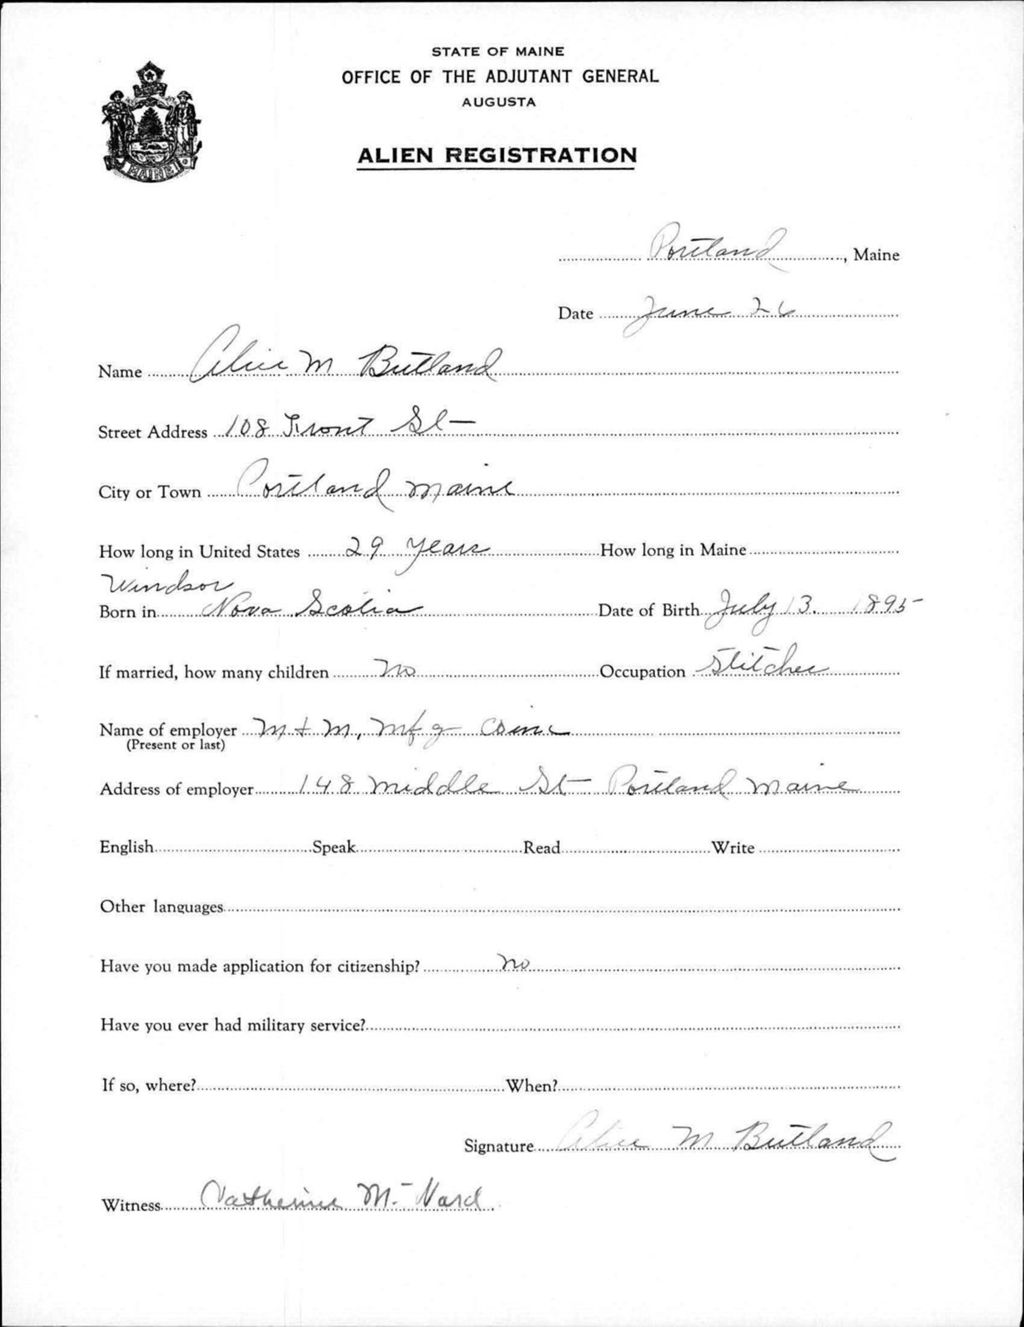 STATE OF MAINE
OFFICE OF THE ADJUTANT GENERAL
AUGUSTA
ALIEN REGISTRATION
MAINE
Portland, Maine
Date June 26
Name Alice M Butland
Street Address 108 Front St
City or Town Portland Maine
How long in United States 29 years How long in Maine
Windsor
Born in Nova Scotia Date of Birth July 13. 1895
If married, how many children No Occupation Stitcher
Name of employer M + M, Mfg Co inc
(Present or last)
Address of employer 148 Middle St Portland Maine
English Speak Read Write
Other languages
Have you made application for citizenship? No
Have you ever had military service?
If so, where? When?
Signature Alice M Butland
Witness Catherine M. Ward.